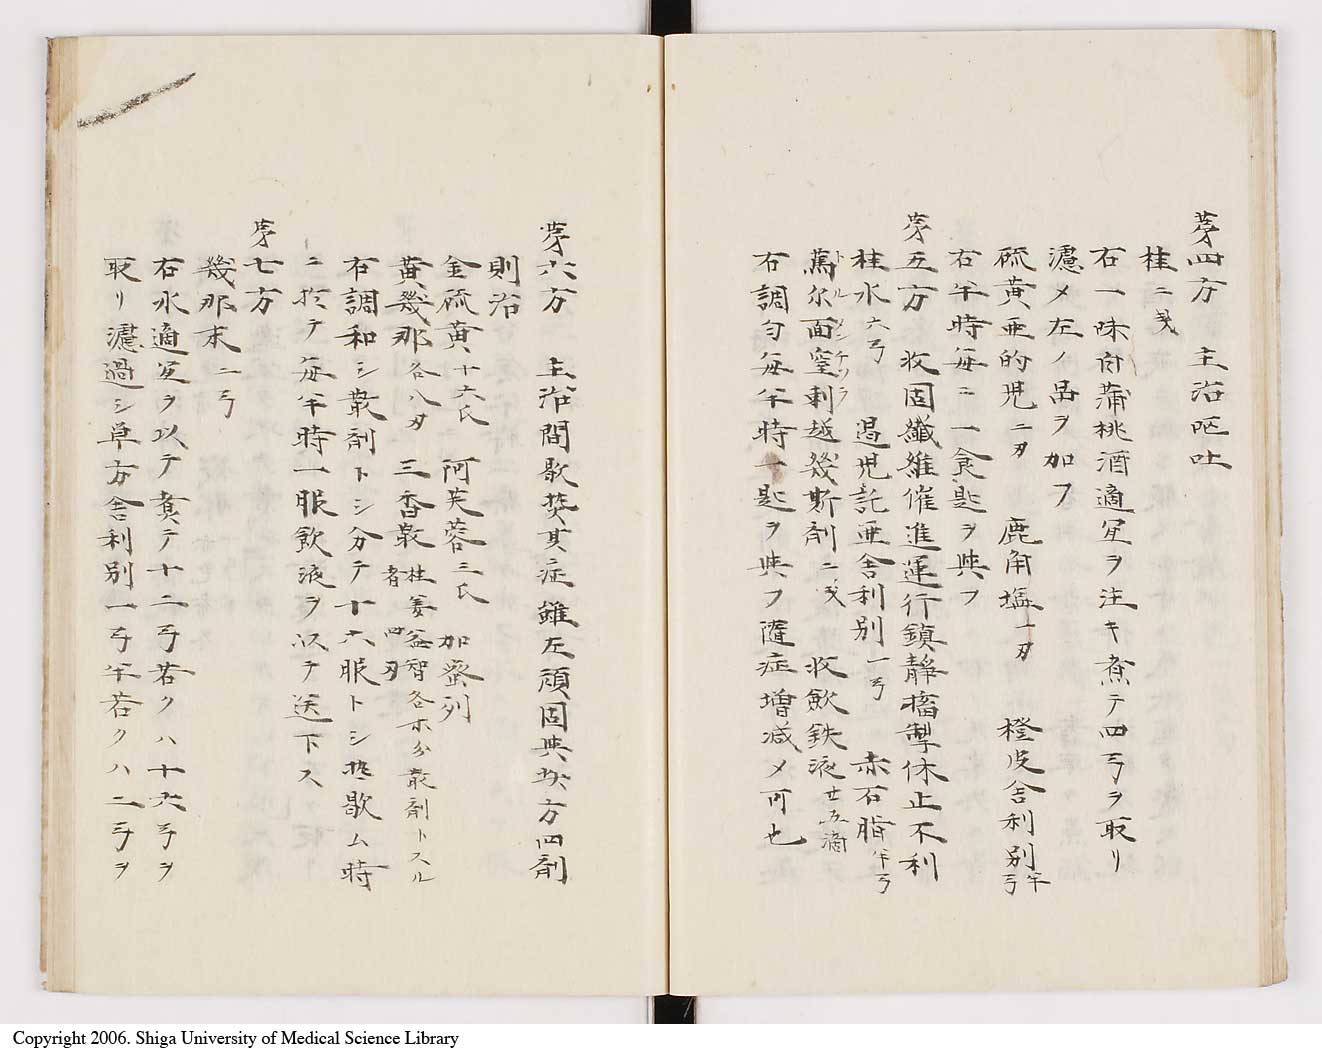 第四方　主治嘔吐
桂二戔
右一味白蒲桃酒適宜ヲ注キ煮テ四弓ヲ取リ
濾メ左ノ品ヲ加フ
硫黄亜的児二刄　鹿角塩一刄　橙皮舎利別半弓
右半時毎ニ一食匙ヲ與フ
第五方　收固纖維催進運行鎮靜搐掣休止不利
桂水六弓　遏児託亜舎利別一弓　赤石脂半弓
萬尓面窒剌越幾斯剤二戔　收飲鉄液廿五滴
右調匀毎半時一匙ヲ與フ隨症増减メ可也
第六方　主治間歇焚其症雖左頑固與此方四劑
則治
金硫黄十六氏　阿芙蓉三氏　加蜜列
黄幾那各八刄　三香散桂姜益智各等分散剤トスル者四刄
右調和シ散剤トシ分テ十六服トシ熱歇ム時
ニ於テ毎半時一服飲液ヲ以テ送下ス
第七方
幾那末二弓
右水適宜ヲ以テ煮テ十二弓若クハ十六弓ヲ
取リ濾過シ草方舎利別一弓半若クハ二弓ヲ
Copyright 2006. Shiga University of Medical Science Library